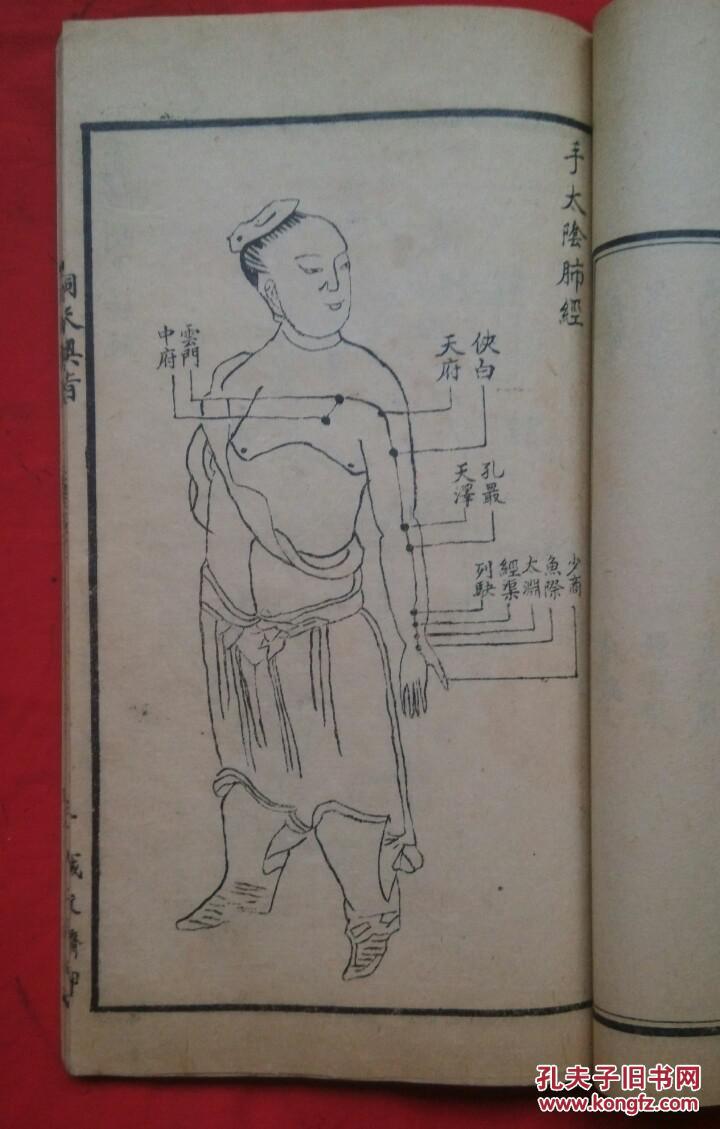 手太陰肺經
俠白
天府
雲門
中府
孔最
天澤
少商
魚際
太淵
經渠
列缺
孔夫子旧书网
www.kongfz.com